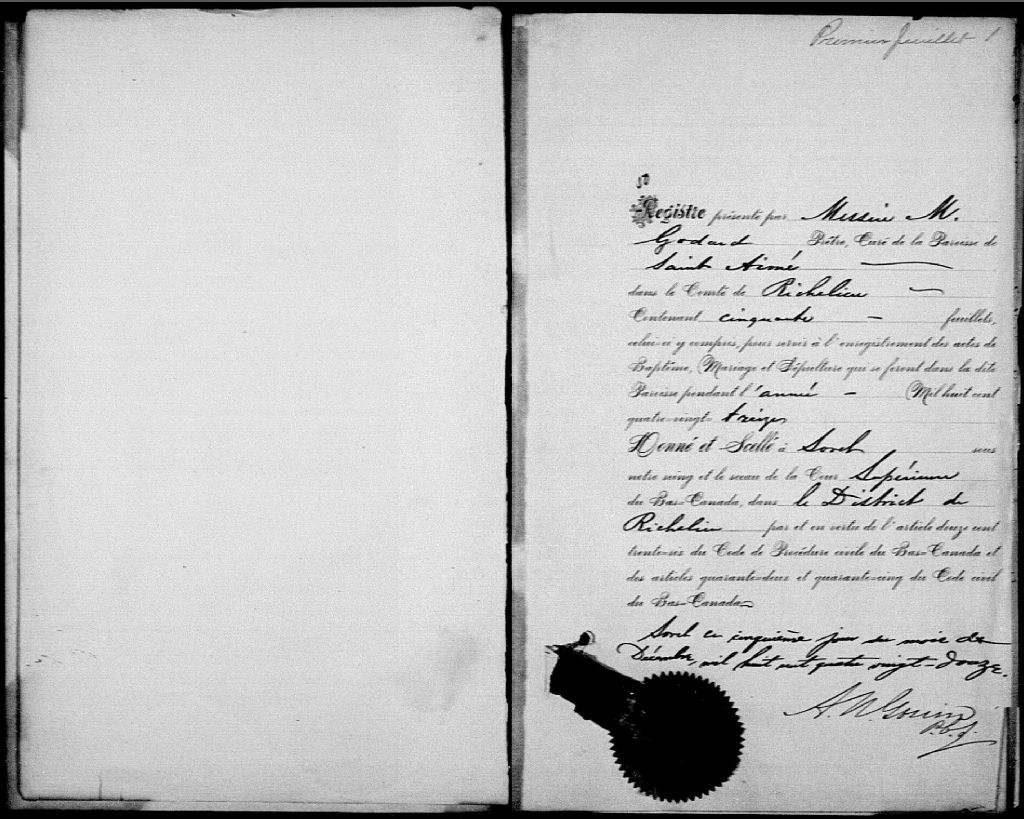 Premier feuillet 1
50
Registre présenté par Messire M.
Godard Prêtre, Curé de la Paroisse de
Saint Aimé
dans le Comté de Richelieu
Contenant cinquante feuillets,
celui-ci y compris, pour servir à l'enregistrement des actes de
Baptême, Mariage et Sépulture qui se feront dans la dite
Paroisse pendant l'année Mil huit cent
quatre-vingt-treize
Donné et Scellé à Sorel sous
notre seing et le sceau de la Cour Supérieure
du Bas-Canada, dans le District de
Richelieu par et en vertu de l'article douze cent
trente-six du Code de Procédure civile du Bas-Canada et
des articles quarante-deux et quarante-cinq du Code civil
du Bas-Canada
Sorel ce cinquième jour du mois de
Décembre, mil huit cent quatre vingt-douze.
A. N. Gouin
P.C.S.